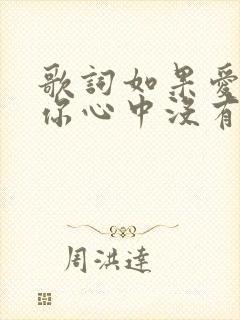 歌詞如果愛
你心中沒有
周洪達